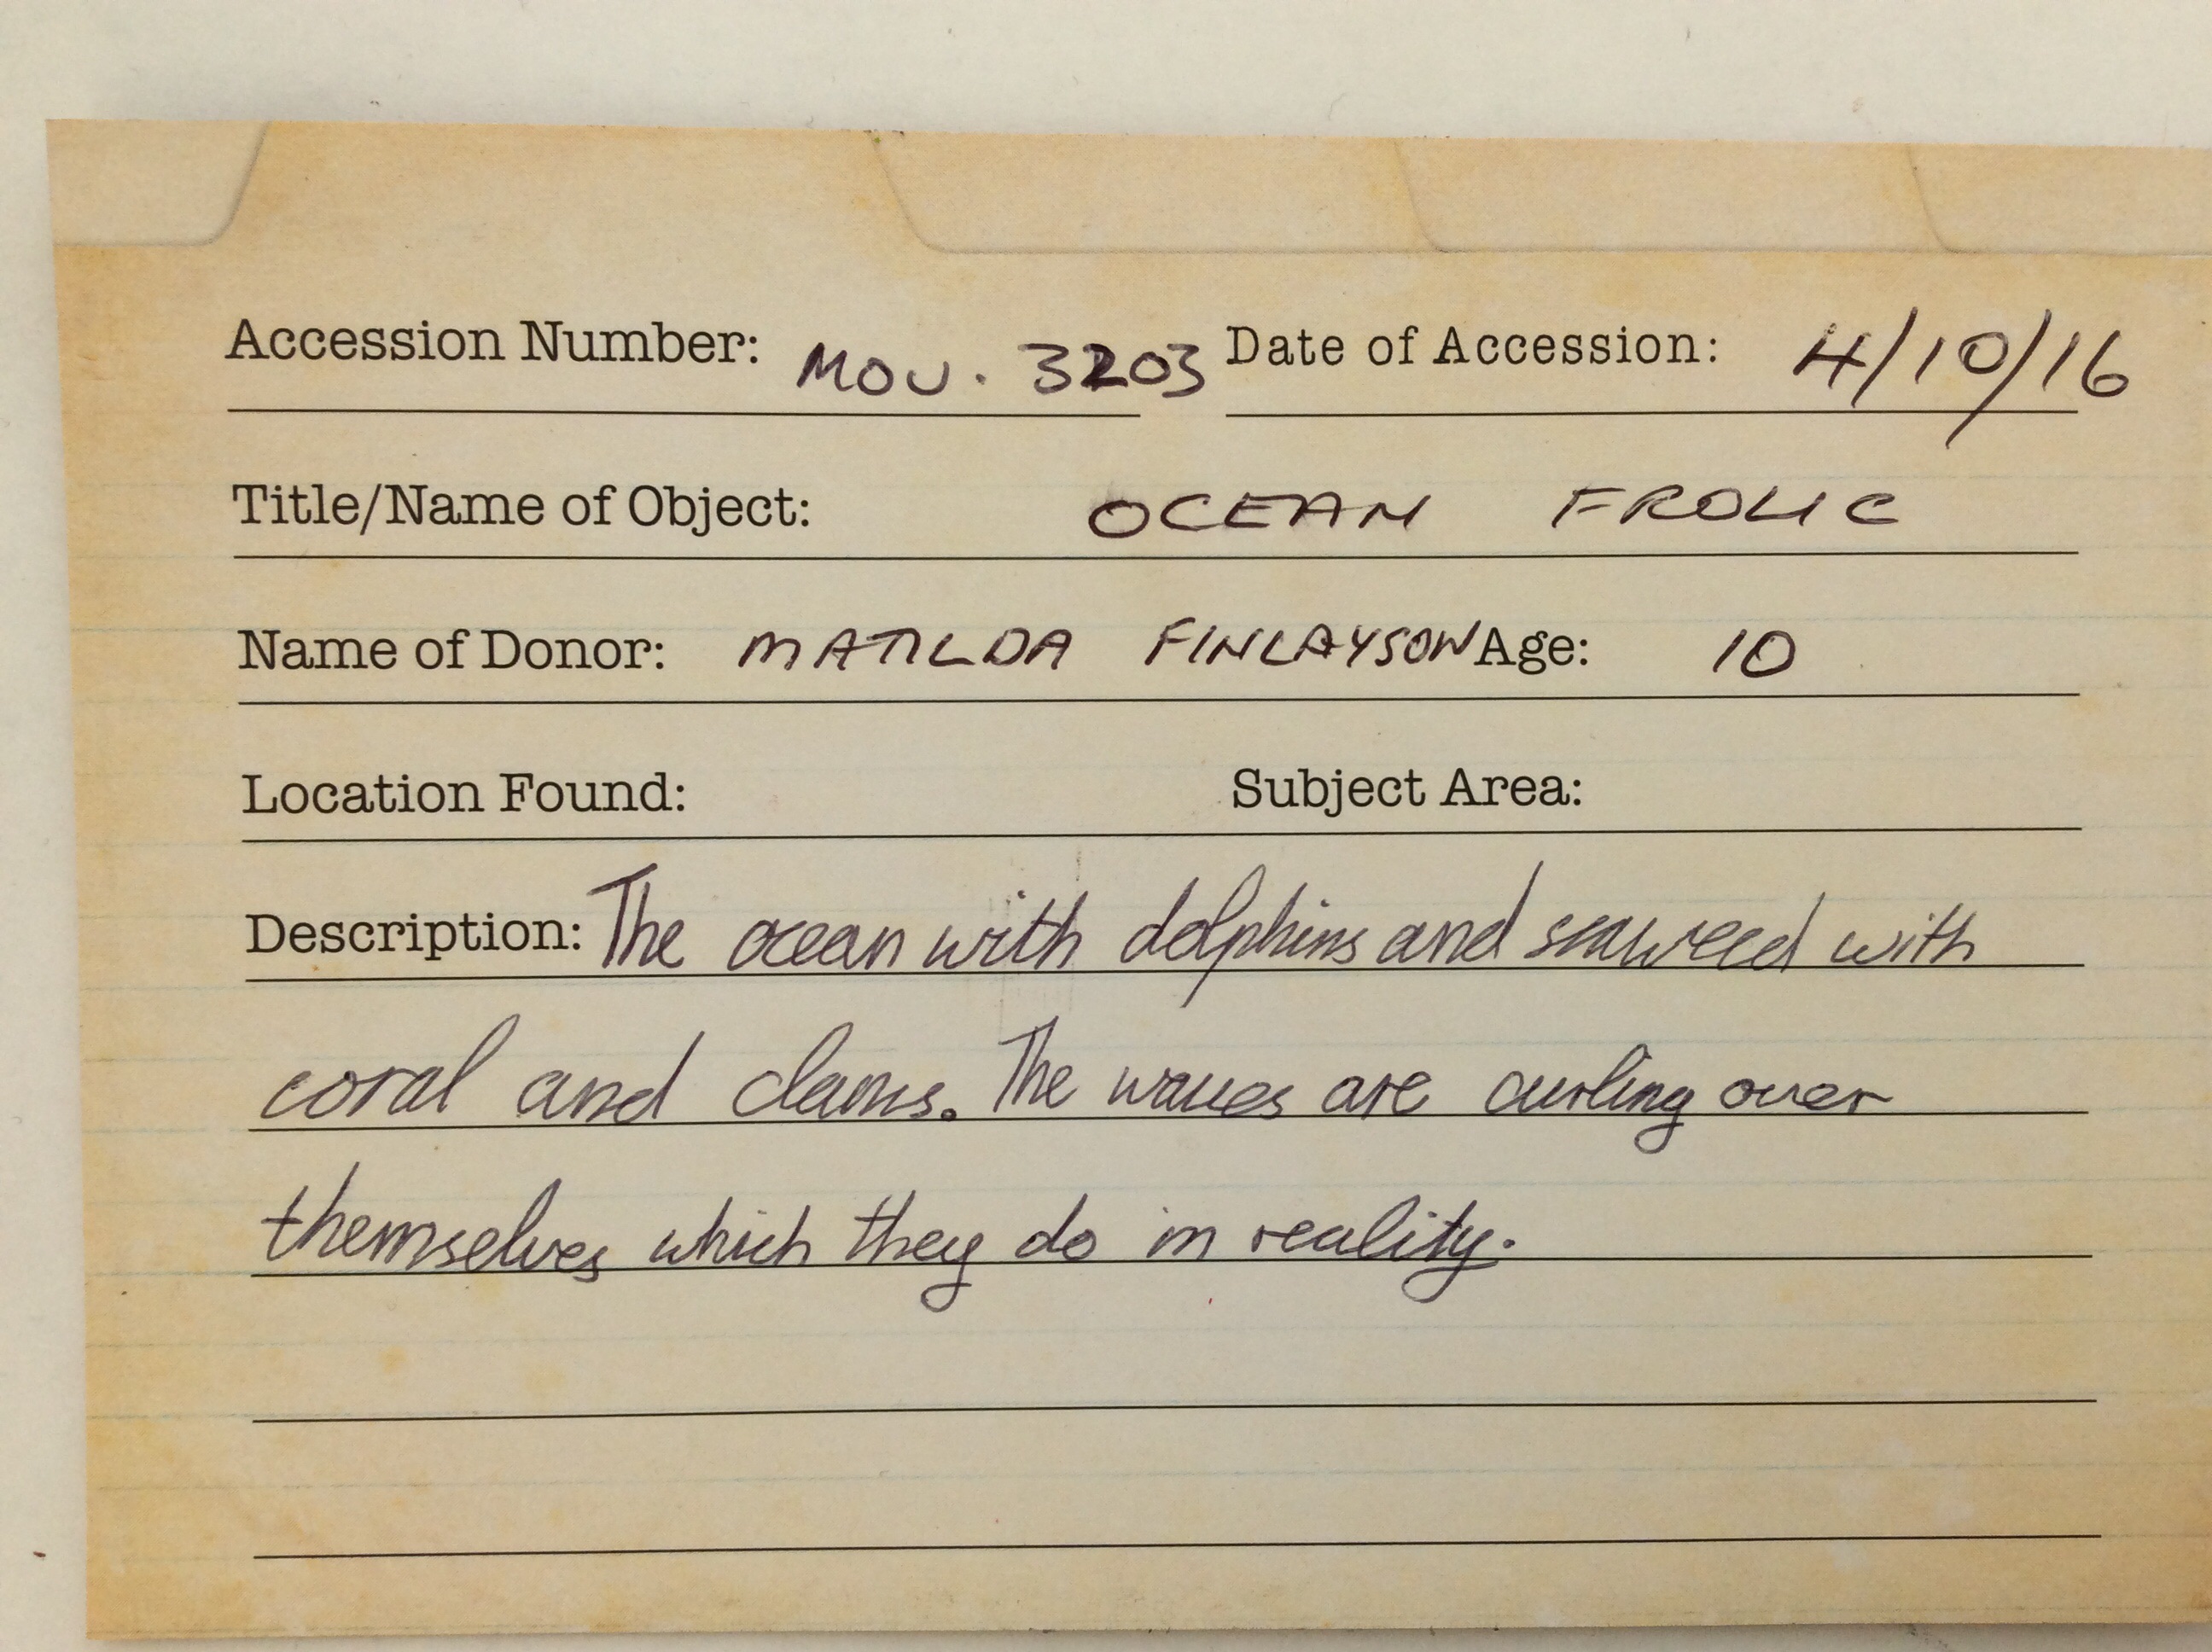 Accession Number: MOU. 3203 Date of Accession: 4/10/16
Title/Name of Object: OCEAN FROLIC
Name of Donor: MATILDA FINLAYSON Age: 10
Location Found: Subject Area:
Description: The ocean with dolphins and seaweed with
coral and clams. The waves are curling over
themselves which they do in reality.